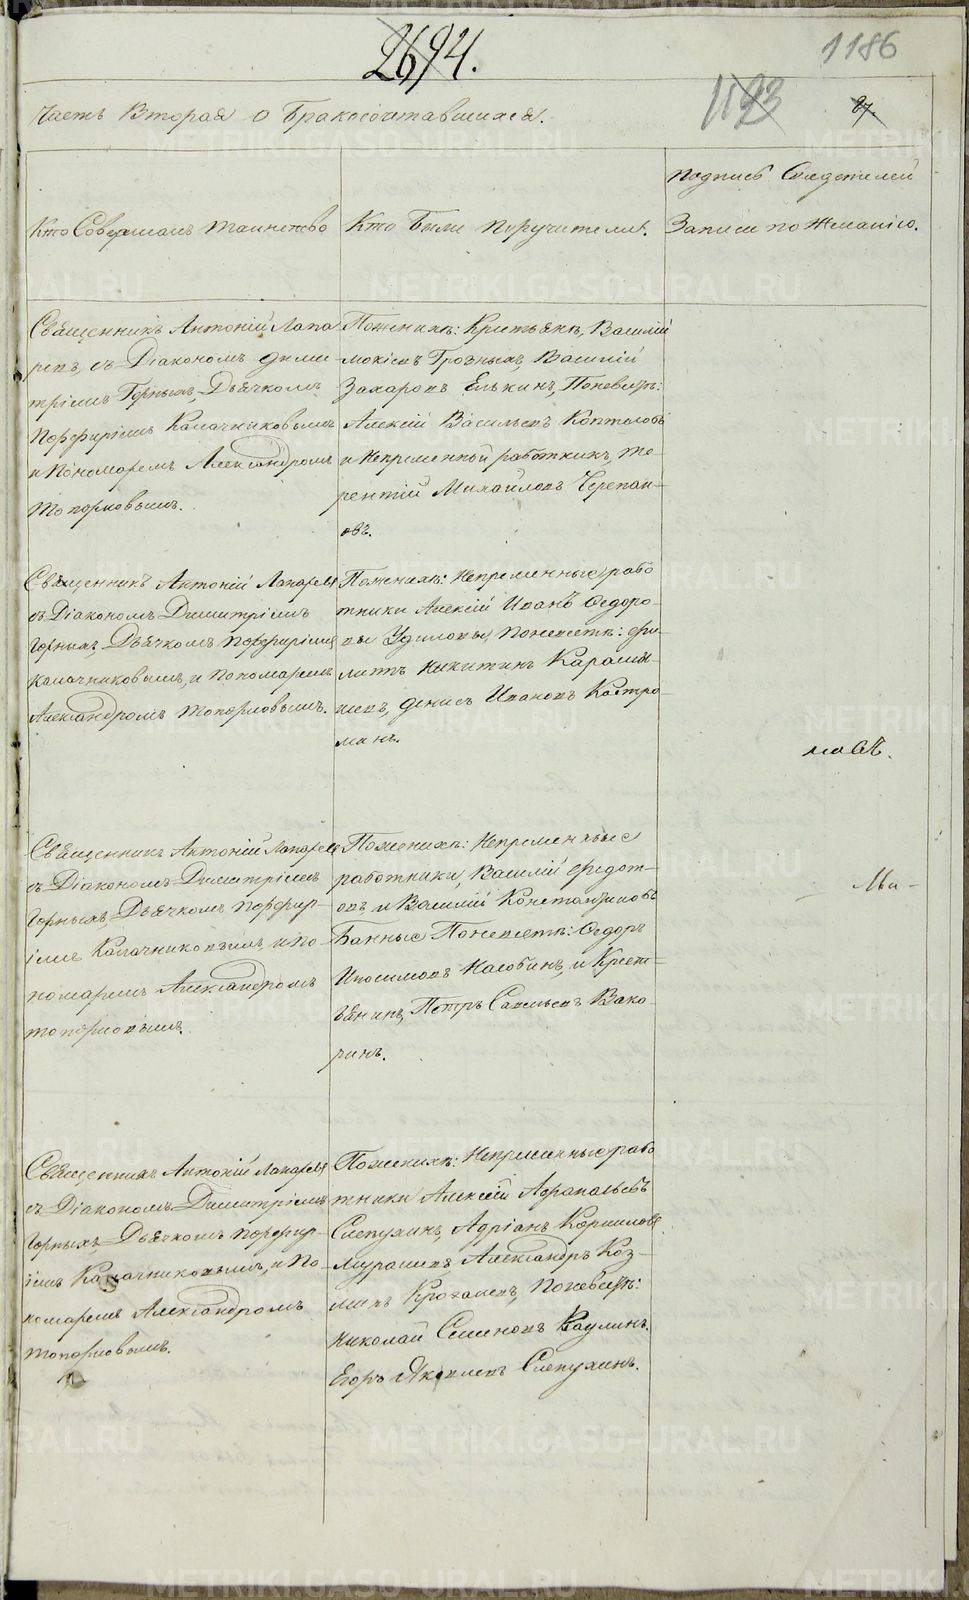 2694.
1186
1193
87.
Часть Вторая о Бракосочетавшихся.
Кто Совершалъ таинство
Кто Были поручители.
подпись Свидетелей
Записи по Желанію.
Священникъ Антоній Лапа
ревъ, съ Діакономъ Дими-
тріемъ Горныхъ, Дьячкомъ
Порфиріемъ Калачниковымъ
и Пономаремъ Александромъ
Топорковымъ.
Поженихѣ: Василій
Мокіевъ Грозныхъ, Василій
Захаровъ Елькинъ, Поневестѣ:
Алексій Васильевъ Коптеловъ
и Непременной работникъ, Те-
рентій Михайловъ Черепан-
овъ.
Священникъ Антоній Лапаревъ
съ Діакономъ Димитріемъ
Горныхъ, Дьячкомъ Порфиріемъ
Калачниковымъ, и Пономаремъ
Александромъ Топорковымъ.
Поженихѣ: Непременные рабо
тники Алексій Иванъ Федоро-
вы Поневестѣ: Фи-
литъ Никитинъ
Денисъ Ивановъ Костро
минъ.
мовъ.
Священникъ Антоній Лапаревъ
съ Діакономъ Димитріемъ
Горныхъ, Дьячкомъ Порфир-
іемъ Калачниковымъ, и по-
номаремъ Александромъ
Топорковымъ.
Поженихѣ: Непременные
работники, Василій Федот-
овъ и Василій Константиновъ
Банные Поневестѣ: Федоръ
и Крест-
ьянинъ, Петръ Савельевъ Вако-
ринъ.
Священникъ Антоній Лапаревъ
съ Діакономъ Димитріемъ
Горныхъ, Дьячкомъ Порфир-
іемъ Калачниковымъ, и По-
номаремъ Александромъ
Топорковымъ.
Поженихѣ: Непременные рабо
тники Алексій Афанасьевъ
Слепухинъ, Адріанъ Корниловъ
Александръ Коз-
минъ Поневестѣ:
Николай Семеновъ Ваулинъ.
Егоръ Яковлевъ Слепухинъ.
METRIKI.GASO-URAL.RU